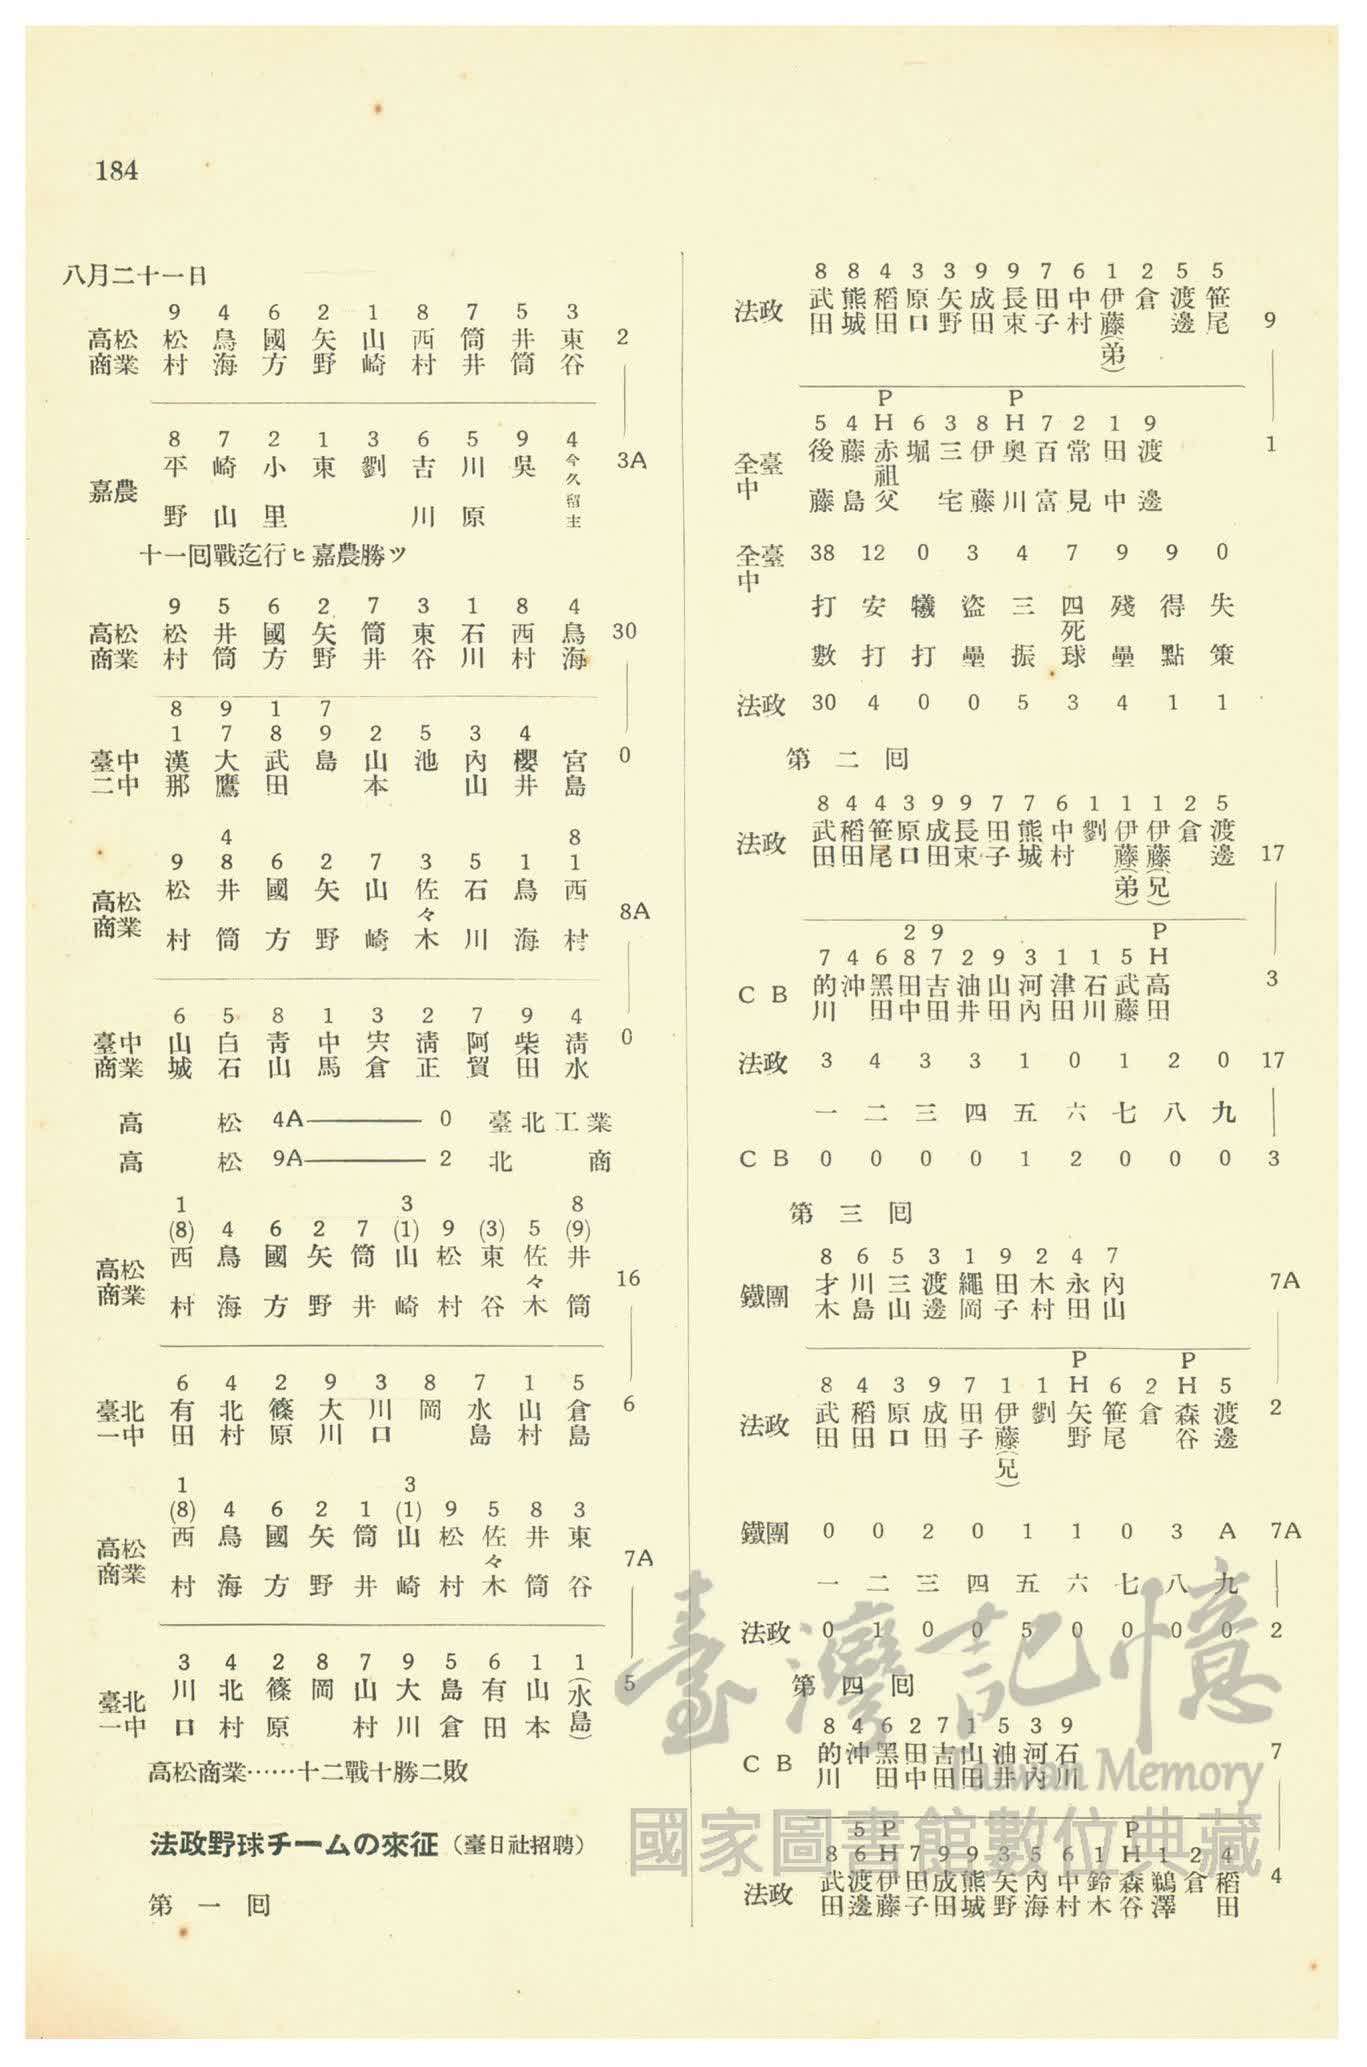 184
八月二十一日
9 4 6 2 1 8 7 5 3
高松商業 松村 鳥海 國方 矢野 山崎 西村 筒井 井筒 東谷 2
8 7 2 1 3 6 5 9 4
嘉農 平野 崎山 小里 東 劉 吉川 川原 吳 今久留主 3A
十一回戰迄行ヒ嘉農勝ツ
9 5 6 2 7 3 1 8 4
高松商業 松村 井筒 國方 矢野 筒井 東谷 石川 西村 鳥海 30
8 9 1 7
1 7 8 9 2 5 3 4
臺中二中 漢那 大鷹 武田 島 山本 池 內山 櫻井 宮島 0
4 8
9 8 6 2 7 3 5 1 1
高松商業 松村 井筒 國方 矢野 山崎 佐々木 石川 鳥海 西村 8A
6 5 8 1 3 2 7 9 4
臺中商業 山城 白石 靑山 中馬 宍倉 淸正 阿賀 柴田 淸水 0
高松 4A——0 臺北工業
高松 9A——2 北商
1 3 8
(8) 4 6 2 7 (1) 9 (3) 5 (9)
高松商業 西村 鳥海 國方 矢野 筒井 山崎 松村 東谷 佐々木 井筒 16
6 4 2 9 3 8 7 1 5
臺北一中 有田 北村 篠原 大川 川口 岡 水島 山村 倉島 6
1 3
(8) 4 6 2 1 (1) 9 5 8 3
高松商業 西村 鳥海 國方 矢野 筒井 山崎 松村 佐々木 井筒 東谷 7A
3 4 2 8 7 9 5 6 1 1
臺北一中 川口 北村 篠原 岡 山村 大川 島倉 有田 山本 (水島) 5
高松商業……十二戰十勝二敗
法政野球チームの來征（臺日社招聘）
第一回
8 8 4 3 3 9 9 7 6 1 2 5 5
法政 武田 熊城 稻田 原口 矢野 成田 長束 田子 中村 伊藤(弟) 倉 渡邊 笹尾 9
P P
5 4 H 6 3 8 H 7 2 1 9
全臺中 後藤 藤島 赤祖父 堀 三宅 伊藤 奧川 百富 常見 田中 渡邊 1
全臺中 38 12 0 3 4 7 9 9 0
打數 安打 犧打 盜壘 三振 四死球 殘壘 得點 失策
法政 30 4 0 0 5 3 4 1 1
第二回
8 4 4 3 9 9 7 7 6 1 1 1 2 5
法政 武田 稻田 笹尾 原口 成田 長束 田子 熊城 中村 劉 伊藤(弟) 伊藤(兄) 倉 渡邊 17
2 9 P
7 4 6 8 7 2 9 3 1 1 5 H
CB 的川 沖 黑田 田中 吉田 油井 山田 河內 津田 石川 武藤 高田 3
法政 3 4 3 3 1 0 1 2 0 17
一 二 三 四 五 六 七 八 九
CB 0 0 0 0 1 2 0 0 0 3
第三回
8 6 5 3 1 9 2 4 7
鐵團 才木 川島 三山 渡邊 繩岡 田子 木村 永田 內山 7A
P P
8 4 3 9 7 1 1 H 6 2 H 5
法政 武田 稻田 原口 成田 田子 伊藤(兄) 劉 矢野 笹尾 倉 森谷 渡邊 2
鐵團 0 0 2 0 1 1 0 3 A 7A
一 二 三 四 五 六 七 八 九
法政 0 1 0 0 5 0 0 0 0 2
第四回
8 4 6 2 7 1 5 3 9
CB 的川 沖 黑田 田中 吉田 山田 油井 河內 石川 7
5 P P
8 6 H 7 9 9 3 5 6 1 H 1 2 4
法政 武田 渡邊 伊藤 田子 成田 熊城 矢野 內海 中村 鈴木 森谷 鵜澤 倉 稻田 4
臺灣記憶
Taiwan Memory
國家圖書館數位典藏